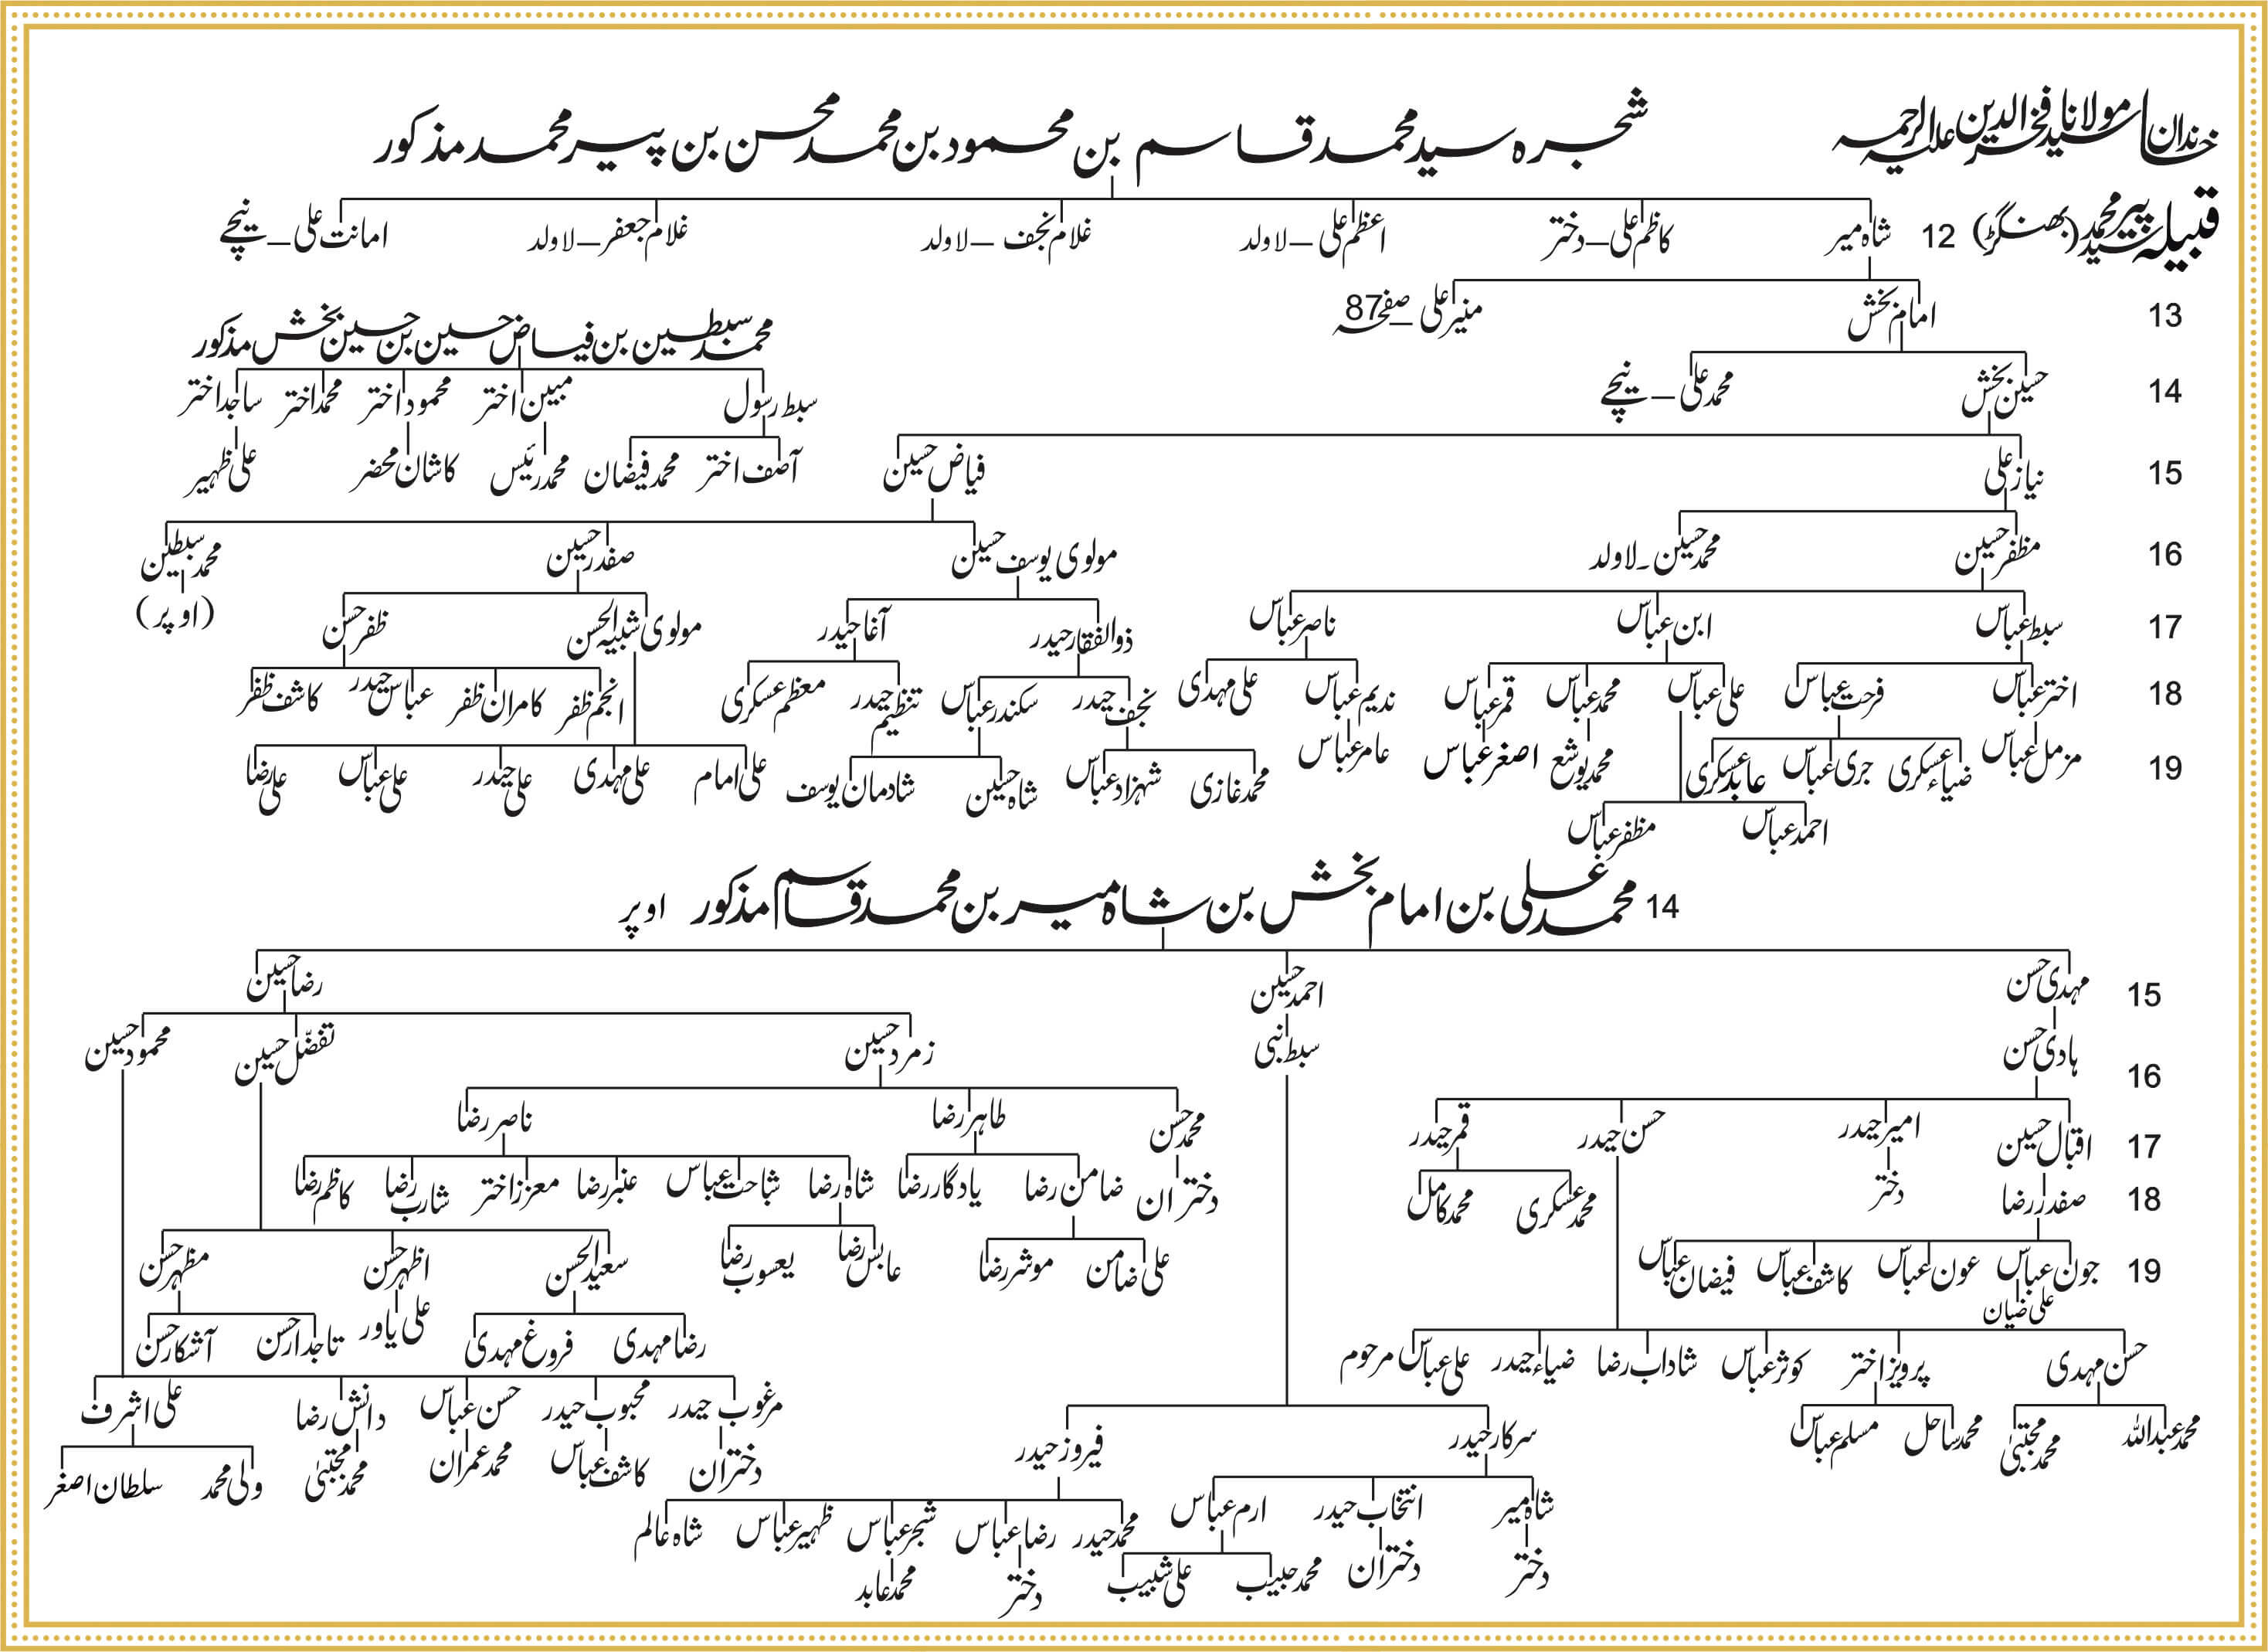 خاندان مولانا سید فخرالدین علیہ الرحمہ
شجرہ سید محمد قاسم بن محمود بن محمد محسن بن پیر محمد مذکور
قبیلہ سید پیر محمد (بھنگڑ)
12 شاہ میر کاظم علی – دختر اعظم علی – لاولد غلام نجف – لاولد غلام جعفر – لاولد امانت علی – نیچے
13 امام بخش منیر علی – صفحہ 87
محمد سبطین بن فیاض حسین بن حسین بخش مذکور
14 حسین بخش محمد علی – نیچے
سبط رسول مبین اختر محمود اختر محمد اختر ساجد اختر
15 نیاز علی فیاض حسین
آصف اختر محمد فیضان محمد رئیس کاشان محضر علی ظہیر
16 مظفر حسین محمد حسین - لاولد مولوی یوسف حسین صفدر حسین محمد سبطین
(اوپر)
17 سبط عباس ابن عباس ناصر عباس ذوالفقار حیدر آغا حیدر مولوی شبیہ الحسن ظفر حسن
18 اختر عباس فرحت عباس علی عباس محمد عباس قمر عباس ندیم عباس علی مہدی نجف حیدر سکندر عباس تنظیم حیدر معظم عسکری انجم ظفر کامران ظفر عباس حیدر کاشف ظفر
19 مزمل عباس ضیاء عسکری جری عباس عابد عسکری محمد یوشع اصغر عباس عامر عباس محمد غازی شہزاد عباس شاہ حسین شادمان یوسف علی امام علی مہدی علی حیدر علی عباس علی رضا
احمد عباس مظفر عباس
14 محمد علی بن امام بخش بن شاہ میر بن محمد قاسم مذکور اوپر
15 مہدی حسن احمد حسین رضا حسین
16 ہادی حسن سبط نبی زمرد حسین تفضّل حسین محمود حسین
17 اقبال حسین امیر حیدر حسن حیدر قمر حیدر محمد حسن طاہر رضا ناصر رضا
18 صفدر رضا دختر محمد عسکری محمد کامل دختران ضامن رضا یادگار رضا شاہ رضا شباحت عباس عنبر رضا معزز اختر شارب رضا کاظم رضا
19 جون عباس عون عباس کاشف عباس فیضان عباس علی ضامن موثر رضا عابس رضا یعسوب رضا سعید الحسن اظہر حسن مظہر حسن
علی ضیان
رضا مہدی فروغ مہدی علی یاور تاجدار حسن آشکار حسن
حسن مہدی پرویز اختر کوثر عباس شاداب رضا ضیاء حیدر علی عباس مرحوم
مرغوب حیدر محبوب حیدر حسن عباس دانش رضا علی اشرف
محمد عبداللہ محمد مجتبیٰ محمد ساحل مسلم عباس سرکار حیدر فیروز حیدر
دختران کاشف عباس محمد عمران محمد مجتبیٰ ولی محمد سلطان اصغر
شاہ میر انتخاب حیدر ارم عباس محمد حیدر رضا عباس شجر عباس ظہیر عباس شاہ عالم
دختر دختران محمد حبیب علی شبیب دختر محمد عابد